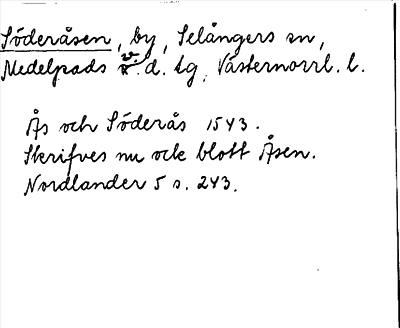 Söderåsen, by, Selångers sn,
Medelpads v. d. tg, Västernorrl. l.
Ås och Söderås 1543.
Skrifves nu ock blott Åsen.
Nordlander 5 s. 243.